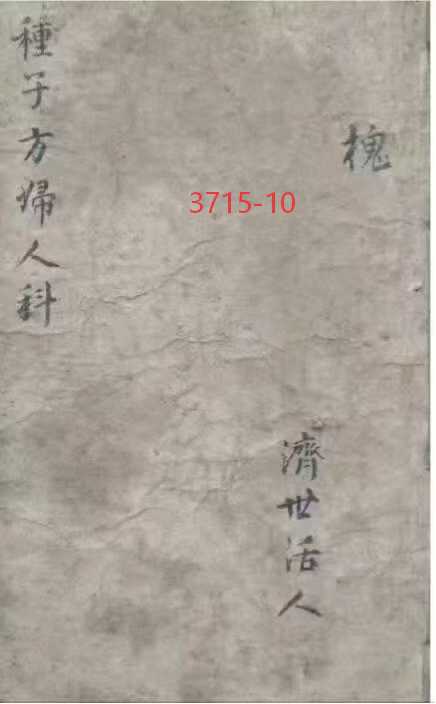 槐
濟世活人
種子方婦人科
3715-10